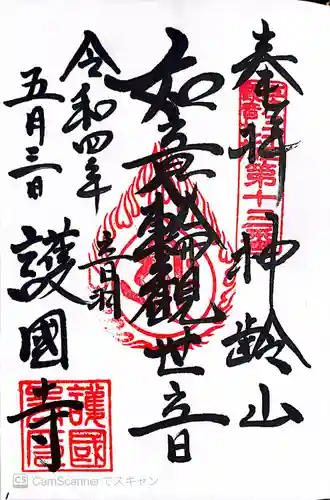 奉拝 神齢山
如意輪観世音
令和四年
五月三日
立月羽
護國寺
第十三番
護國寺
CS CamScannerでスキャン